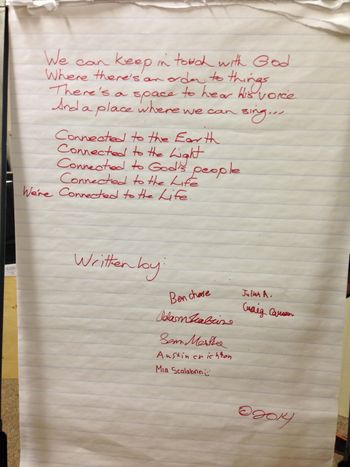 We can keep in touch with God
Where there's an order to things
There's a space to hear His voice
And a place where we can sing...
Connected to the Earth
Connected to the Light
Connected to God's people
Connected to the Life
We're Connected to the Life
Written by:
Ben chase
Julian A.
Adam Scalabrini
Craig
Sam
Austin crichton
Mia Scalabrini
©2014